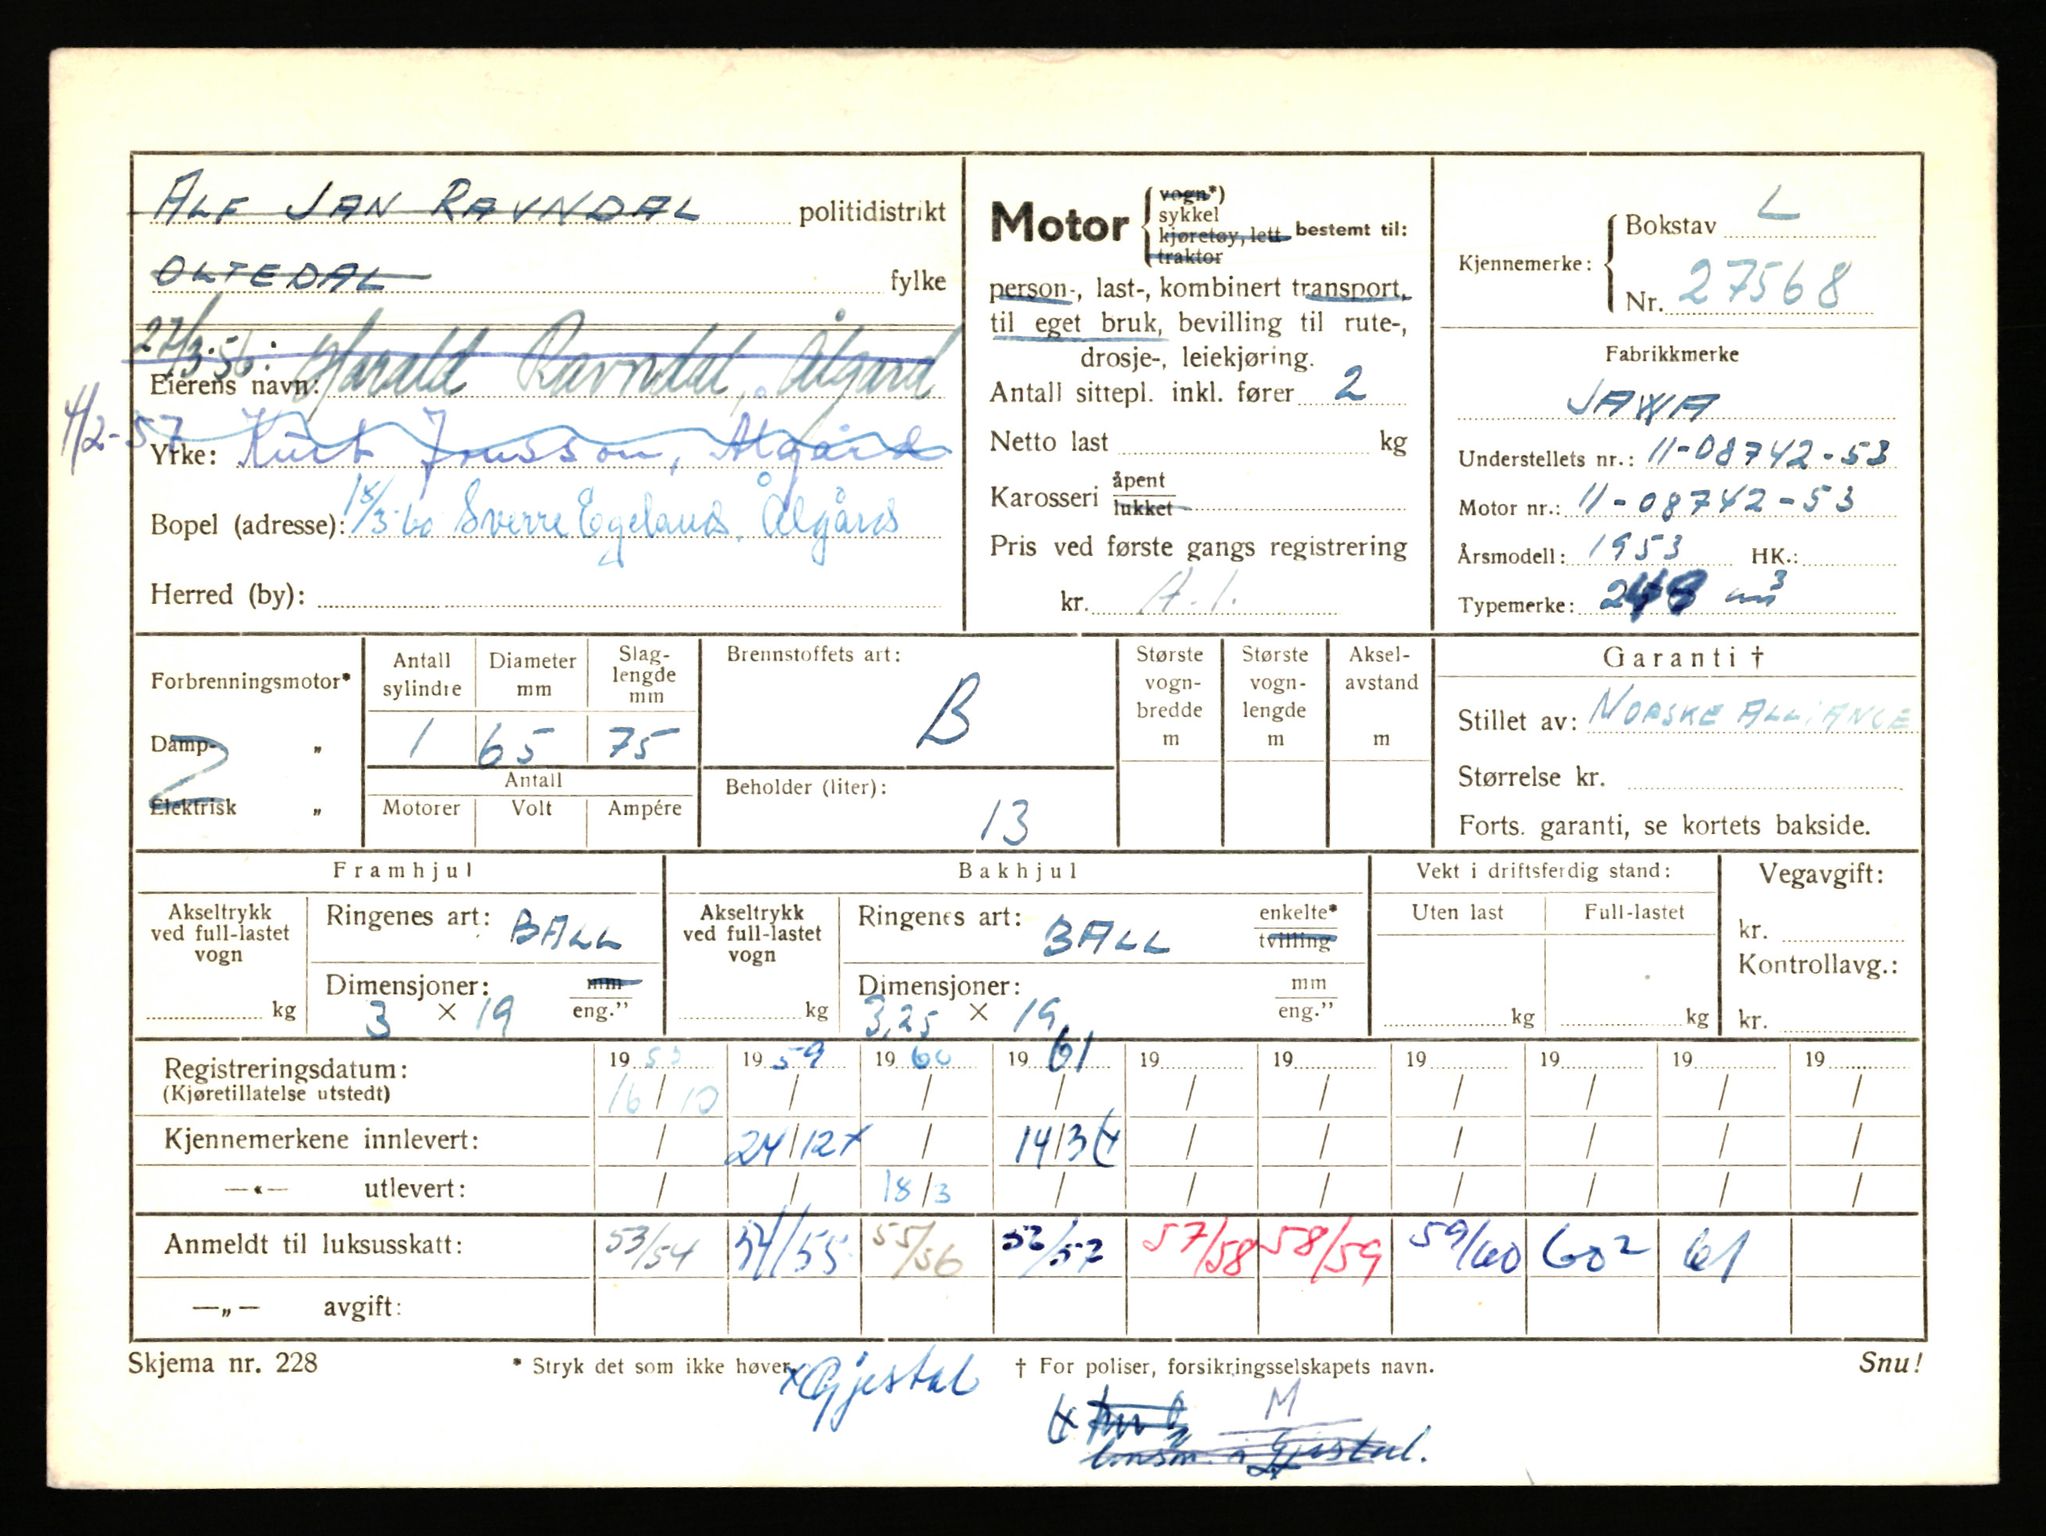 ALF JAN RAVNDAL politidistrikt
OLTEDAL fylke
27/3-56: Harald Ravndal, Ålgård
Eierens navn:
4/2-57 Yrke: Kurt Jonsson, Ålgård
Bopel (adresse): 18/3-60 Sverre Egeland, Ålgård
Herred (by):
Motor { vogn*) sykkel kjøretøy, lett traktor bestemt til:
person-, last-, kombinert transport,
til eget bruk, bevilling til rute-,
drosje-, leiekjøring.
Antall sittepl. inkl. fører 2
Netto last kg
Karosseri åpent lukket
Pris ved første gangs registrering
kr. A.l.
Kjennemerke: { Bokstav L
Nr. 27568
Fabrikkmerke
JAWA
Understellets nr.: 11-08742-53
Motor nr.: 11-08742-53
Årsmodell: 1953 HK.:
Typemerke: 248 cm³
Forbrenningsmotor*
Damp- „
Elektrisk „
Antall sylindre Diameter mm Slag-lengde mm
1 65 75
Antall
Motorer Volt Ampére
Brennstoffets art:
B
Beholder (liter):
13
Største vogn-bredde m
Største vogn-lengde m
Aksel-avstand m
Garanti †
Stillet av: NORSKE ALLIANCE
Størrelse kr.
Forts. garanti, se kortets bakside.
Framhjul
Akseltrykk ved full-lastet vogn kg
Ringenes art: BALL
Dimensjoner: mm
3 × 19 eng.”
Bakhjul
Akseltrykk ved full-lastet vogn kg
Ringenes art: BALL enkelte* tvilling
Dimensjoner: mm
3,25 × 19 eng.”
Vekt i driftsferdig stand:
Uten last Full-lastet
kg kg
Vegavgift:
kr.
Kontrollavg.:
kr.
Registreringsdatum: 19 53 19 59 19 60 19 61 19 19 19 19 19 19
(Kjøretillatelse utstedt) 16/10 / / / / / / / / /
Kjennemerkene innlevert: / 24/12 x / 14/3 / / / / / /
—«— utlevert: / / 18/3 / / / / / / /
Anmeldt til luksusskatt: 53/54 54/55 55/56 56/57 57/58 58/59 59/60 60² 61
—„— avgift:
Skjema nr. 228 * Stryk det som ikke høver. † For poliser, forsikringsselskapets navn. Snu!
x Gjestal
M
lensm. i Gjestal.